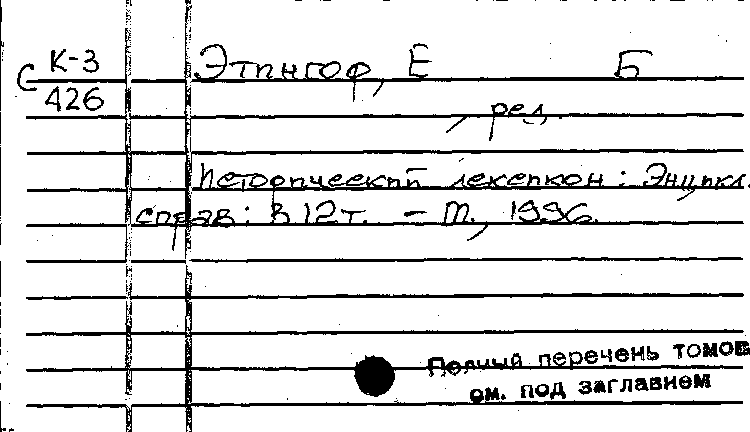 С К-3 Этингоф, Е Б
426
, ред.
Исторический лексикон: Энцикл.
справ: В 12 т. - М., 1996.
Полный перечень томов
см. под заглавием